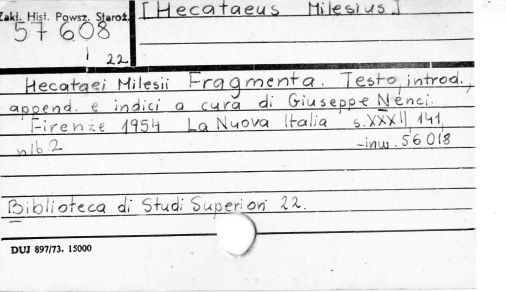 Zakł. Hist. Powsz. Staroż.
57 608
22
[Hecataeus Milesius]
Hecataei Milesii Fragmenta. Testo, introd.,
append. e indici a cura di Giuseppe Nenci.
Firenze 1954 La Nuova Italia s. XXXII, 141,
nlb. 2 - inw. 56 018
Biblioteca di Studi Superiori 22.
DUJ 897/73. 15000